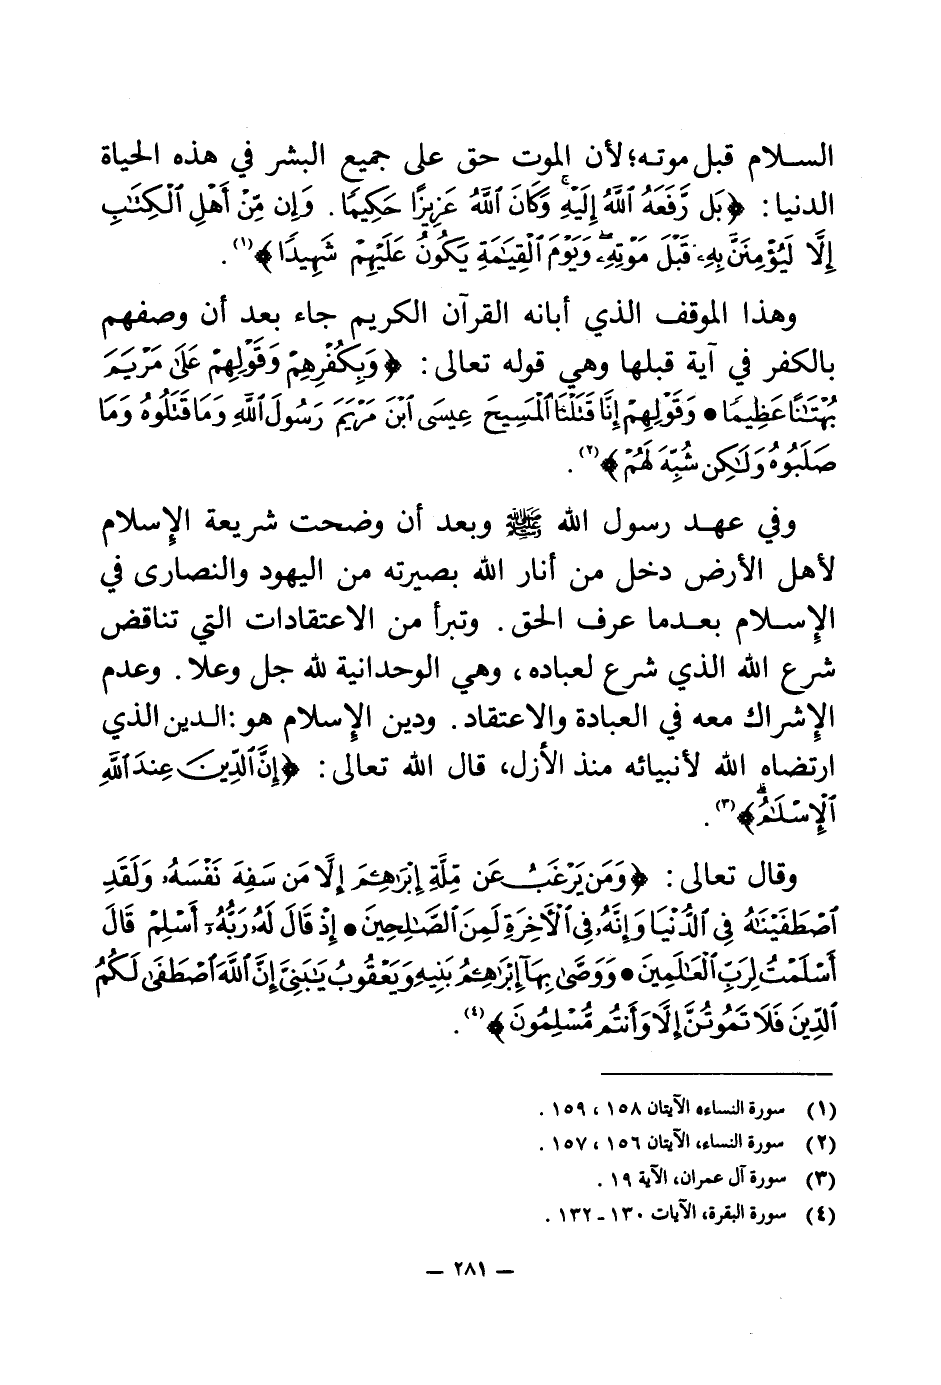 السلام قبل موته؛ لأن الموت حق على جميع البشر في هذه الحياة
الدنيا: ﴿بَل رَّفَعَهُ ٱللَّهُ إِلَيْهِۚ وَكَانَ ٱللَّهُ عَزِيزًا حَكِيمًا. وَإِن مِّنْ أَهْلِ ٱلْكِتَٰبِ
إِلَّا لَيُؤْمِنَنَّ بِهِۦ قَبْلَ مَوْتِهِۦۖ وَيَوْمَ ٱلْقِيَٰمَةِ يَكُونُ عَلَيْهِمْ شَهِيدًا﴾(١).
وهذا الموقف الذي أبانه القرآن الكريم جاء بعد أن وصفهم
بالكفر في آية قبلها وهي قوله تعالى: ﴿وَبِكُفْرِهِمْ وَقَوْلِهِمْ عَلَىٰ مَرْيَمَ
بُهْتَٰنًا عَظِيمًا • وَقَوْلِهِمْ إِنَّا قَتَلْنَا ٱلْمَسِيحَ عِيسَى ٱبْنَ مَرْيَمَ رَسُولَ ٱللَّهِ وَمَا قَتَلُوهُ وَمَا
صَلَبُوهُ وَلَٰكِن شُبِّهَ لَهُمْ﴾(٢).
وفي عهد رسول الله ﷺ وبعد أن وضحت شريعة الإسلام
لأهل الأرض دخل من أنار الله بصيرته من اليهود والنصارى في
الإسلام بعدما عرف الحق. وتبرأ من الاعتقادات التي تناقض
شرع الله الذي شرع لعباده، وهي الوحدانية لله جل وعلا. وعدم
الإشراك معه في العبادة والاعتقاد. ودين الإسلام هو: الدين الذي
ارتضاه الله لأنبيائه منذ الأزل، قال الله تعالى: ﴿إِنَّ ٱلدِّينَ عِندَ ٱللَّهِ
ٱلْإِسْلَٰمُۗ﴾(٣).
وقال تعالى: ﴿وَمَن يَرْغَبُ عَن مِّلَّةِ إِبْرَٰهِۦمَ إِلَّا مَن سَفِهَ نَفْسَهُۥ وَلَقَدِ
ٱصْطَفَيْنَٰهُ فِى ٱلدُّنْيَا وَإِنَّهُۥ فِى ٱلْأَخِرَةِ لَمِنَ ٱلصَّٰلِحِينَ • إِذْ قَالَ لَهُۥ رَبُّهُۥٓ أَسْلِمْ قَالَ
أَسْلَمْتُ لِرَبِّ ٱلْعَٰلَمِينَ • وَوَصَّىٰ بِهَآ إِبْرَٰهِۦمُ بَنِيهِ وَيَعْقُوبُ يَٰبَنِىَّ إِنَّ ٱللَّهَ ٱصْطَفَىٰ لَكُمُ
ٱلدِّينَ فَلَا تَمُوتُنَّ إِلَّا وَأَنتُم مُّسْلِمُونَ﴾(٤).
(١) سورة النساء، الآيتان ١٥٨، ١٥٩.
(٢) سورة النساء، الآيتان ١٥٦، ١٥٧.
(٣) سورة آل عمران، الآية ١٩.
(٤) سورة البقرة، الآيات ١٣٠ - ١٣٢.
— ٢٨١ —